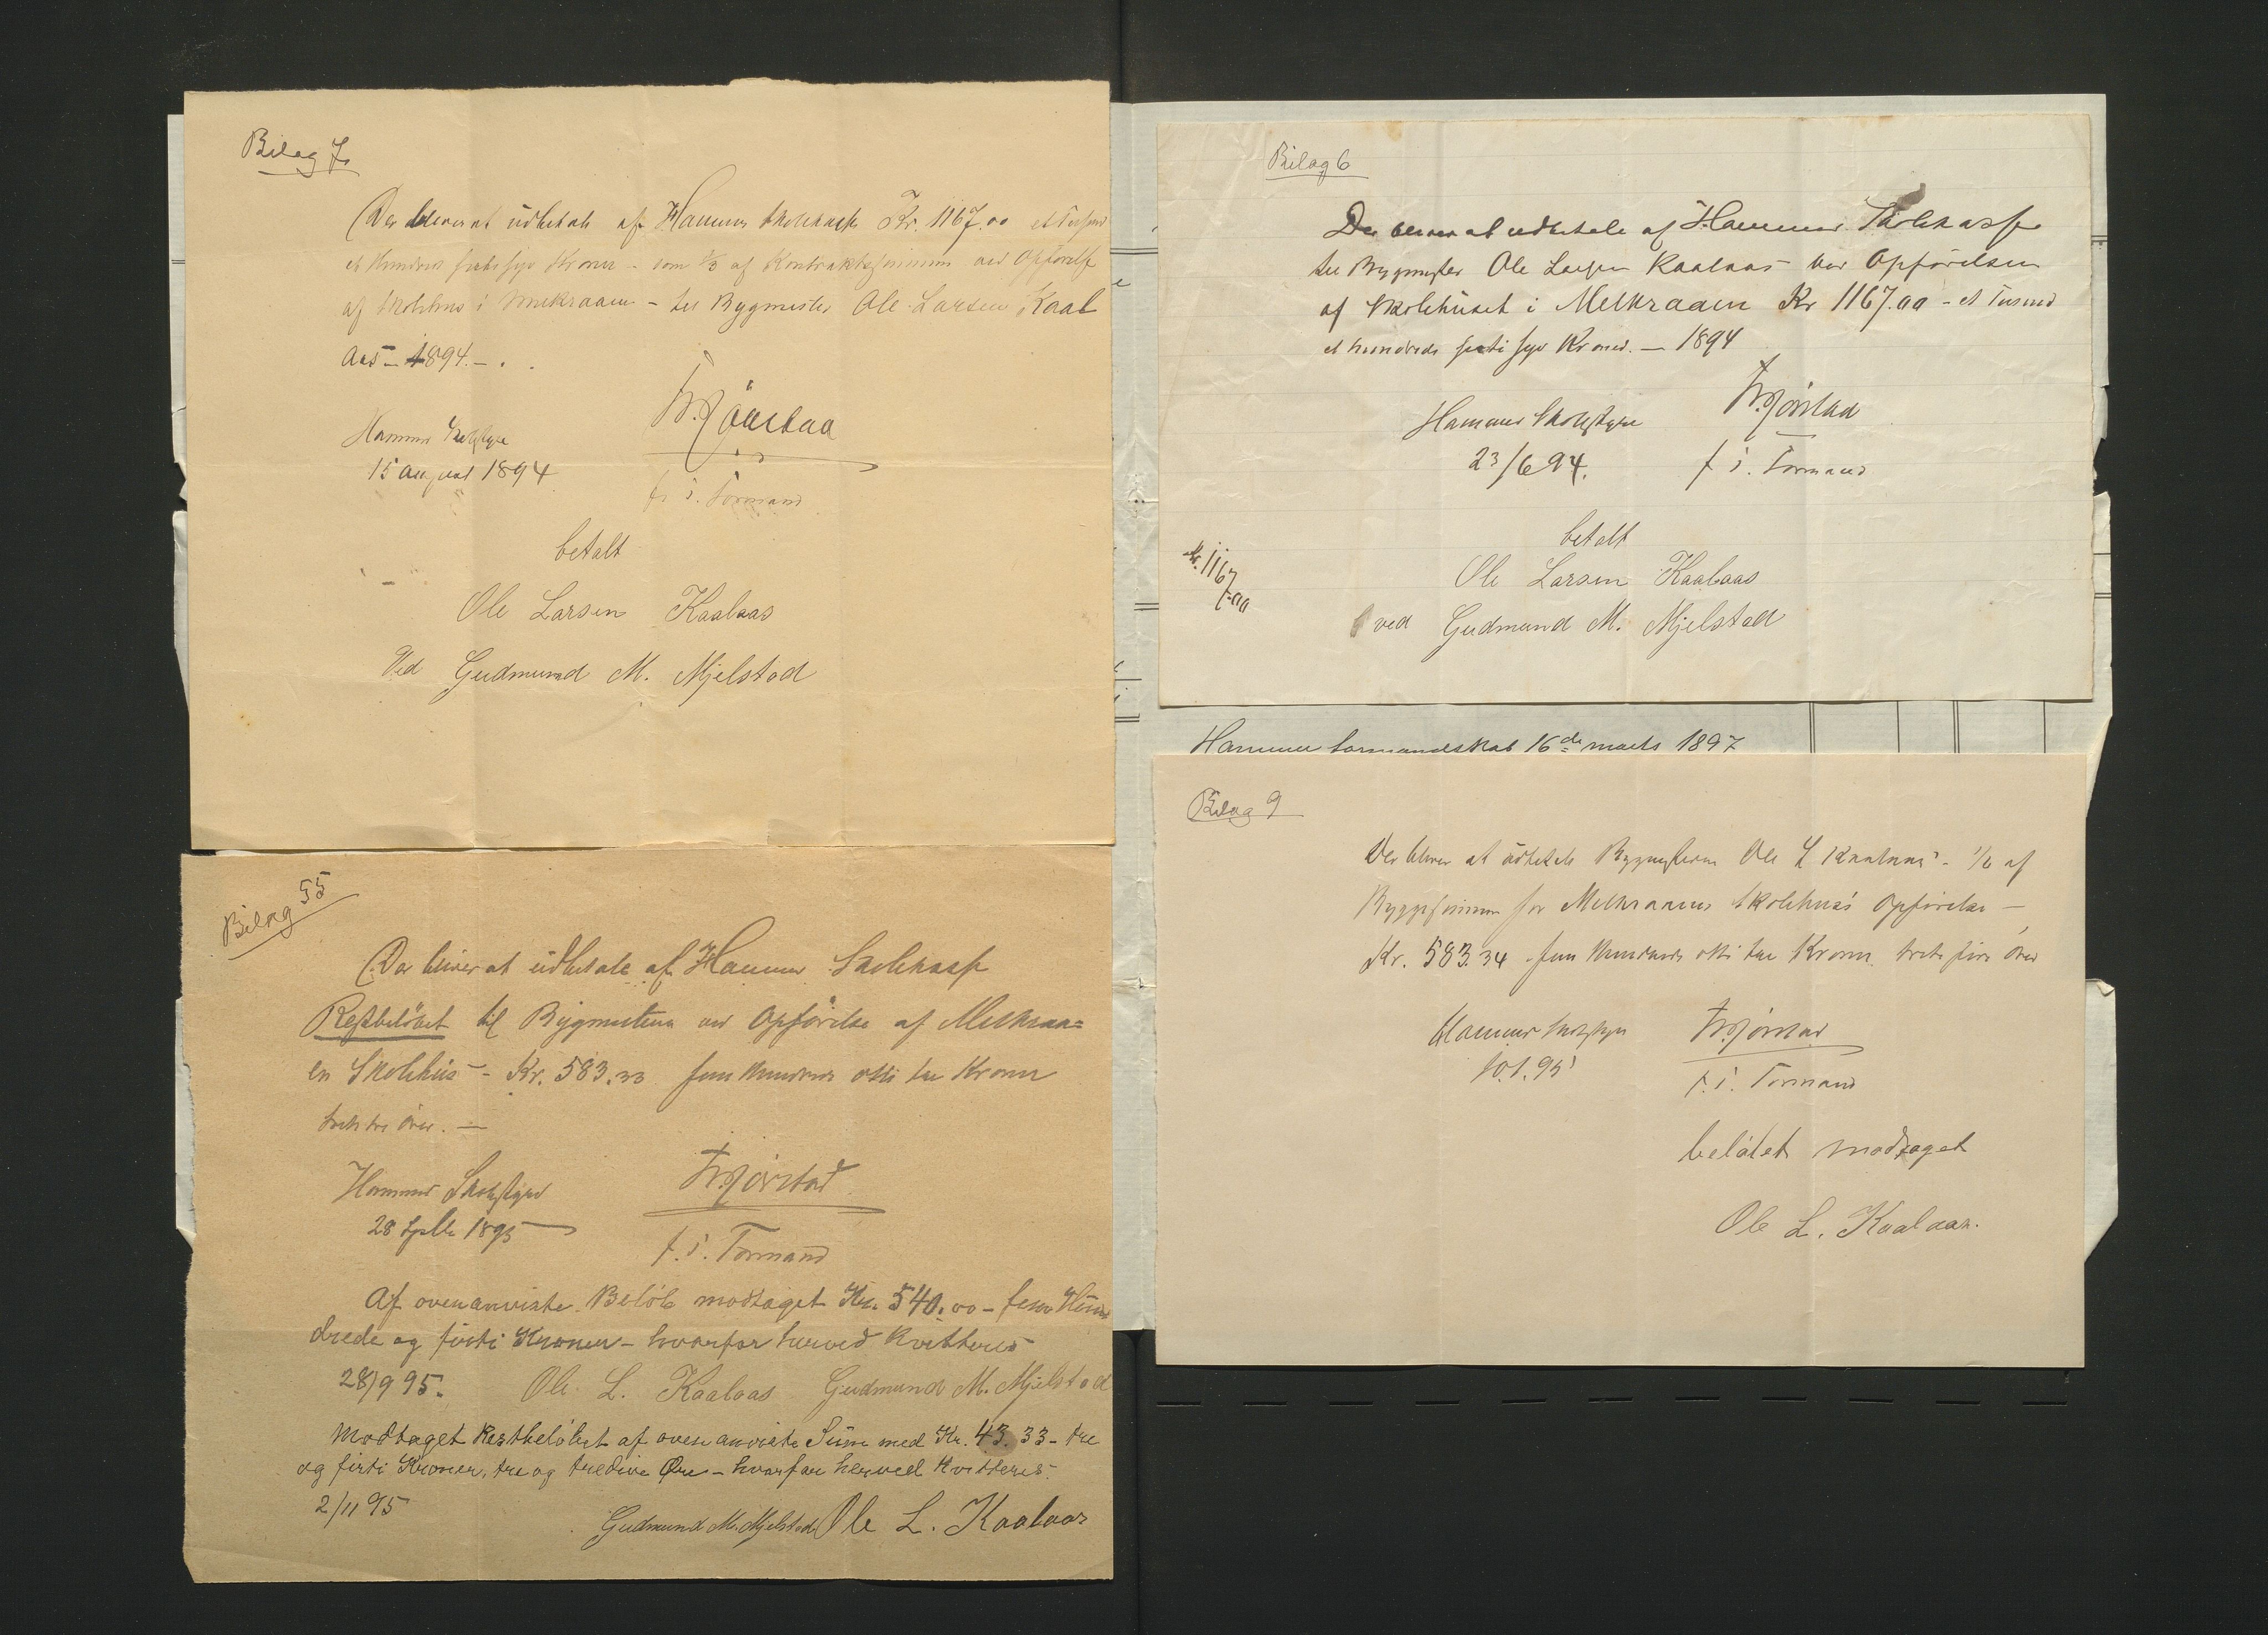 Bilag 7.
Der bliver at udbetale af Hammer Skolekasse Kr. 1167.00 et Tusind
et Hundrede seksti syv Kroner - som 1/3 af Kontraktssummen ved Opförelse
af Skolehus i Melkraaen - til Bygmester Ole Larsen Kaal
aas - 1894. -
Hammer Skolestyre
15 august 1894
f. t. Formand
betalt
Ole Larsen Kaalaas
Ved Gudmund M. Mjelstad
Bilag 55
Der bliver at udbetale af Hammer Skolekasse
Restbelöbet til Bygmesteren ved Opförelse af Melkraa=
en Skolehus - Kr. 583.33 fem Hundrede otti tre Kroner
treti tre Öre. -
Hammer Skolestyre
28 Septbr 1895
f. t. Formand
Af ovenanviste Belöb modtaget Kr. 540.00 - fem Hün
drede og firti Kroner - hvorfor herved kvitteres
28/9 95. Ole L. Kaalaas Gudmund M. Mjelstad
Modtaget Restbelöbet af ovenanviste Süm med Kr. 43.33 - tre
og firti Kroner, tre og tredive Øre - hvorfor herved kvitteres.
2/11 95
Gudmund M. Mjelstad Ole L. Kaalaas
Bilag 6
Der bliver at udbetale af Hammer Skolekasse
til Bygmester Ole Larsen Kaalaas ved Opförelsen
af Skolehüset i Melkraaen Kr 1167.00 - et Tusind
et hundrede seksti syv Kroner. - 1894
Hammer Skolestyre
23/6 94.
f. t. Formand
betalt
Kr. 1167.00
Ole Larsen Kaalaas
ved Gudmund M. Mjelstad
Hammer formandskab 16de marts 1897
Bilag 9
Der bliver at udbetale Bygmesteren Ole L Kaalaas - 1/6 af
Byggesummen for Melkraaens Skolehus's Opförelse -
Kr. 583.34 fem Hundrede otti tre Kroner treti fire Öre
Hammer Skolestyre
10.1.95
f. t. Formand
belöbet modtaget
Ole L. Kaalaas.